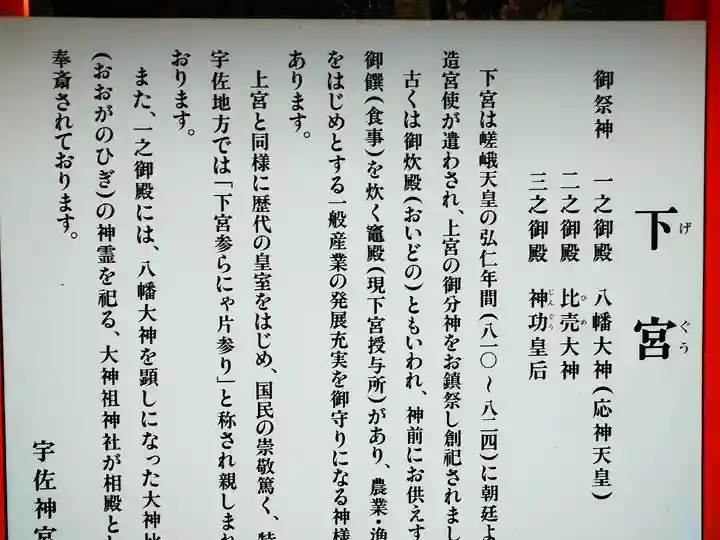 下宮
げぐう
御祭神 一之御殿 八幡大神(応神天皇)
二之御殿 比売大神
ひめ
三之御殿 神功皇后
じんぐう
下宮は嵯峨天皇の弘仁年間(八一〇〜八二四)に朝廷よ
造宮使が遣わされ、上宮の御分神をお鎮祭し創祀されまし
古くは御炊殿(おいどの)ともいわれ、神前にお供えす
御饌(食事)を炊く竈殿(現下宮授与所)があり、農業・漁
をはじめとする一般産業の発展充実を御守りになる神様
あります。
上宮と同様に歴代の皇室をはじめ、国民の崇敬篤く、特
宇佐地方では「下宮参らにゃ片参り」と称され親しまれ
おります。
また、一之御殿には、八幡大神を顕しになった大神比
(おおがのひぎ)の神霊を祀る、大神祖神社が相殿と
奉斎されております。
宇佐神宮